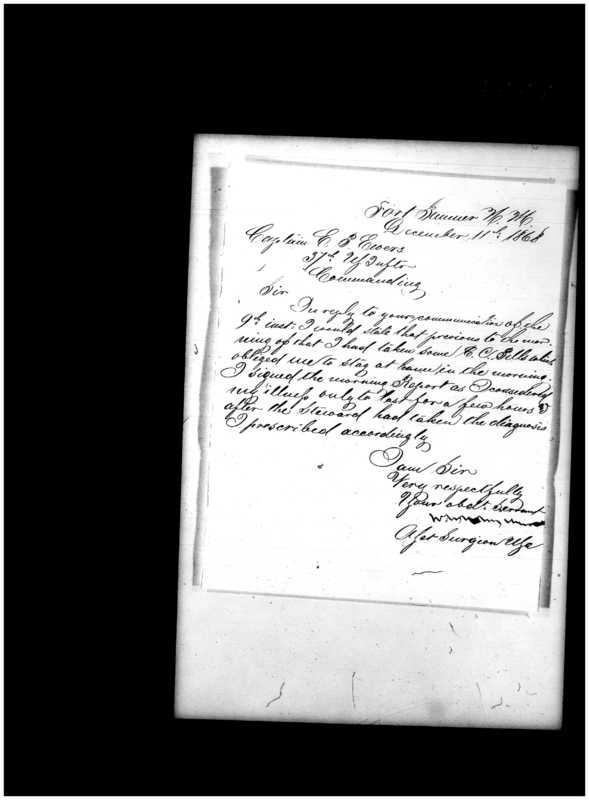 Fort Sumner N. M.
December 11th, 1868
Captain E. P. Ewers
37th Inftr
Commanding
Sir
In reply to your communication of the
9th inst. I would state that previous to the mor-
ning of that I had taken some C. C. Pills which
obliged me to stay at home in the morning.
I signed the morning Report as I considered
my illness only to last for a few hours &
after the Steward had taken the diagnosis
I prescribed accordingly
I am Sir
Very respectfully
Your obdt. Servant
Asst Surgeon USA